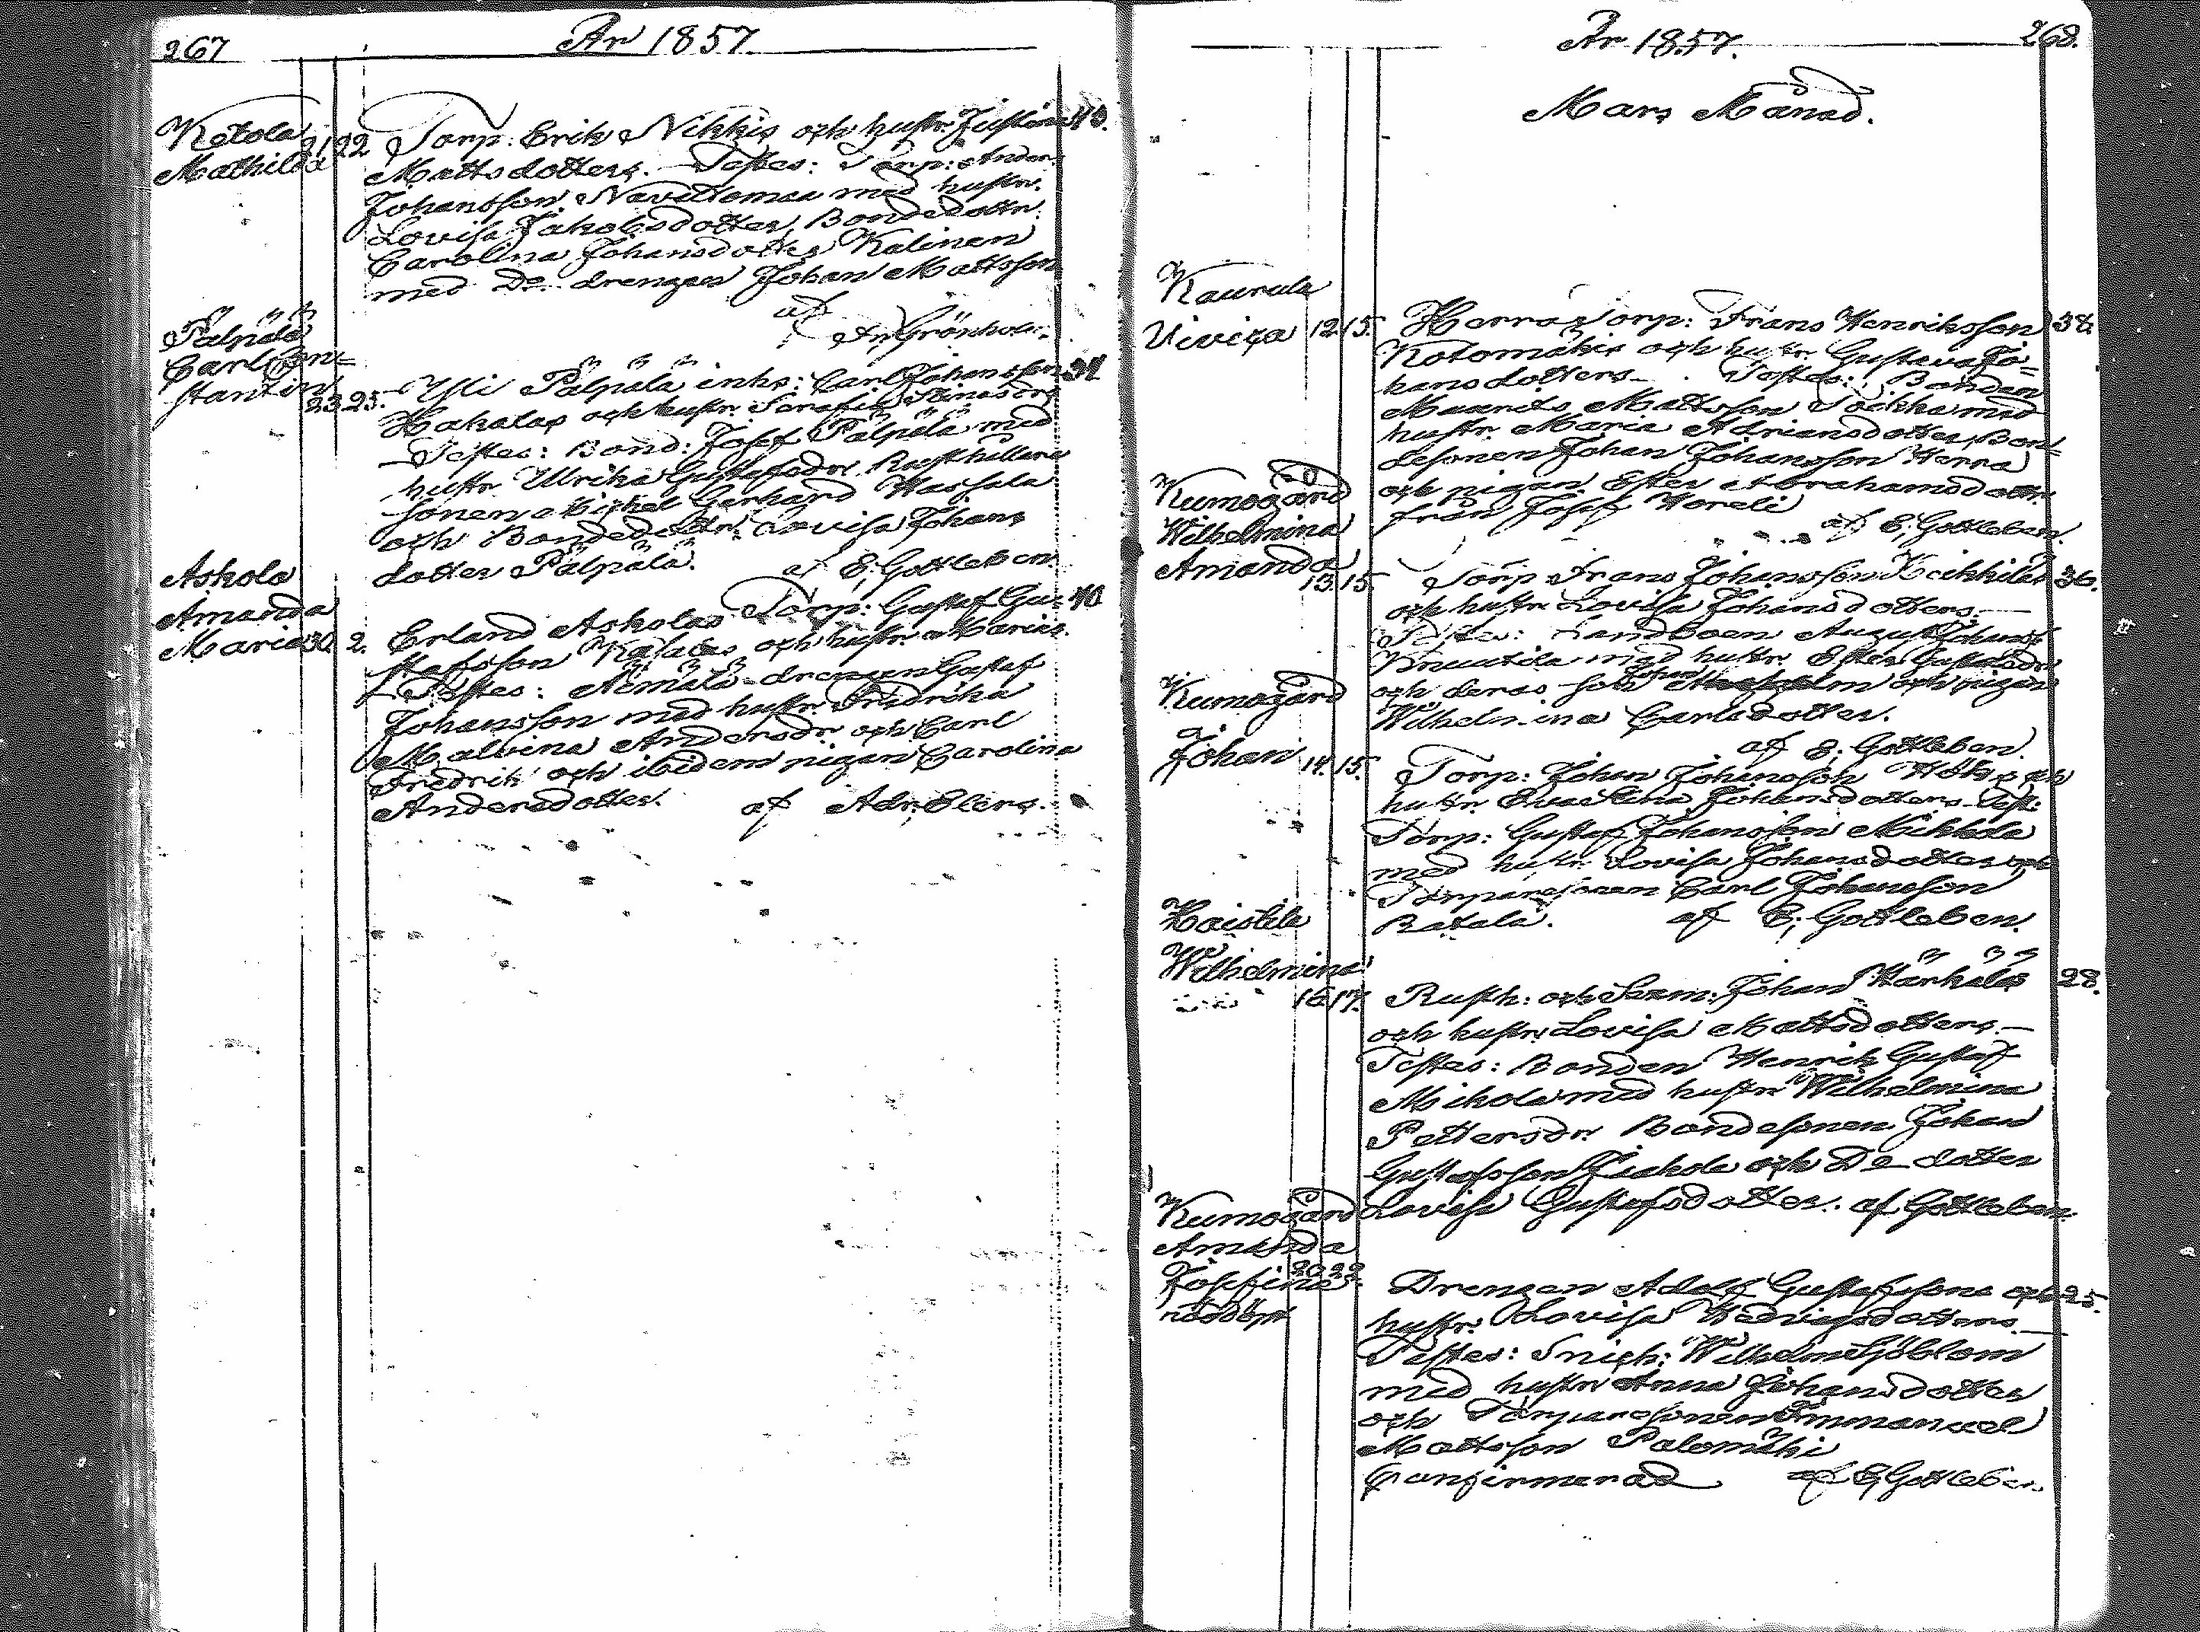 267
År 1857.
Ketola
Mathilda 21 22 Torp: Erik Nikkis och hustr: Justina 43.
Mattsdotters. Testes: Torp: Anders
Johansson Navettomaa med hustr.
Lovisa Jakobsdotter, Bondedottr.
Carolina Johansdotter Kalinen
med Do drengen Johan Mattsson
af
Grönholm.
Pälpälä
Carl Con=
stantin 23. 25. Yli Pälpälä inhs: Carl Johansson 34
Hakalas och hustr. Serafia Stinasdrs
Testes: Bond: Josef Pälpälä med
hustr Ulrika Gustafsdr. Rusthållare
sonen Michel Gerhard Wassala
och Bondedottr. Lovisa Johans
dotter Pälpälä. af E. Gottleben.
Askola
Amanda
Maria 30. 2. Erland Askolas Torp: Gustaf Gu= 40
stafsson och hustr. Marias.
Testes: drengen Gustaf
Johansson med hustr. Fredrika
Malvina Andersdr och Carl
Fredrik och ibidem pigan Carolina
Andersdotter. af Adr. Elers.
År 1857.
268.
Mars Månad.
Kaurula
Uiviza 12. 15. Herra Torp: Frans Henriksson 38.
Kotomäkis och hustr. Gustava Jo=
hansdotters. Testes: Bonden
Maurits Mattsson Sockka med
hustr. Maria Adriansdotter, Bon=
desonen Johan Johansson Herra
och pigan Ester Abrahamsdottr.
från Josef Woreli
af E. Gottleben.
Kumogård
Wilhelmina
Amanda 13. 15. Torp Frans Johansson Heikkiläs 36.
och hustr. Lovisa Johansdotters.
Testes: Landboen August Johanss.
Knuutila med hustr. Ester Gustafsdr
och deras son och pigan
Wilhelmina Carlsdotter.
af E. Gottleben.
Kumogård
Johan 14. 15. Torp: Johan Johansson och
hustr. Eva Stina Johansdotters. Test:
Torp: Gustaf Johansson Mikkola
med hustr. Lovisa Johansdotter och
Torparesonen Carl Johansson
Ratala. af E. Gottleben.
Haistila
Wilhelmina
16. 17. Rusth: och Johan Härkäläs 28.
och hustr. Lovisa Mattsdotters.
Testes: Bonden Henrik Gustaf
Mikola med hustr Wilhelmina
Pettersdr. Bondesonen Johan
Gustafsson och Do dotter
Lovisa Gustafsdotter. af Gottleben.
Kumogård
Amanda
Josefina 20. 22. Drengen Adolf Gustafssons och 25.
nöddöpt hustr. Lovisa Hedvigsdotters.
Testes: Snick: Wilhelm Sjöblom
med hustr Anna Johansdotter
och Torparesonen Immanuel
Mattsson Palomäki
Confirmerad af E. Gottleben.